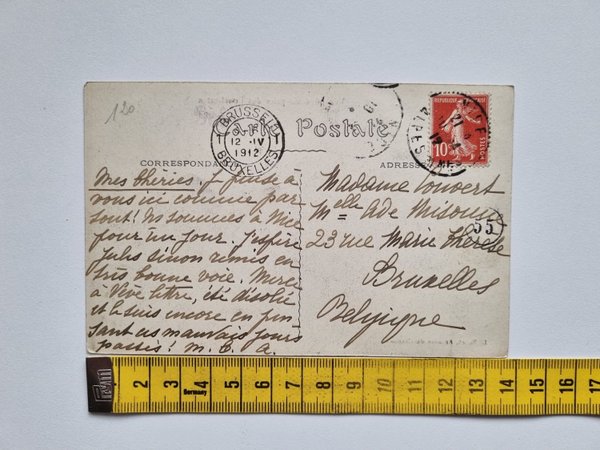 120
BRUSSEL
12 IV
1912
BRUXELLES
Carte Postale
CORRESPONDA
ADRESSE
REPUBLIQUE FRANÇAISE
10
POSTES
NICE
ALPES
Mes chéries, je pense à
vous ici comme par
tout! Ns sommes à Nice
pour un jour. J'espère
Jules sinon remis en
très bonne voie. Merci
à Vève lettre, été désolée
et le suis encore en pen
sant ces mauvais jours
passés! M. A.
Madame Couvert
Melle A de
23 rue Marie Thérèse
Bruxelles
Belgique
55
1 2 3 4 5 6 7 8 9 10 11 12 13 14 15 16 17
Germany